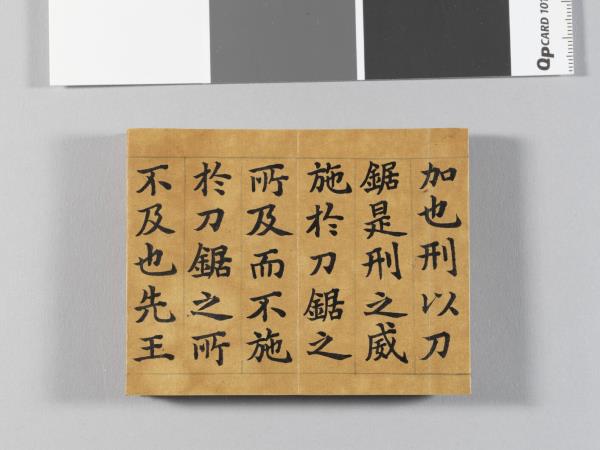 加也刑以刀
鋸是刑之威
施於刀鋸之
所及而不施
於刀鋸之所
不及也先王
QPCARD 101